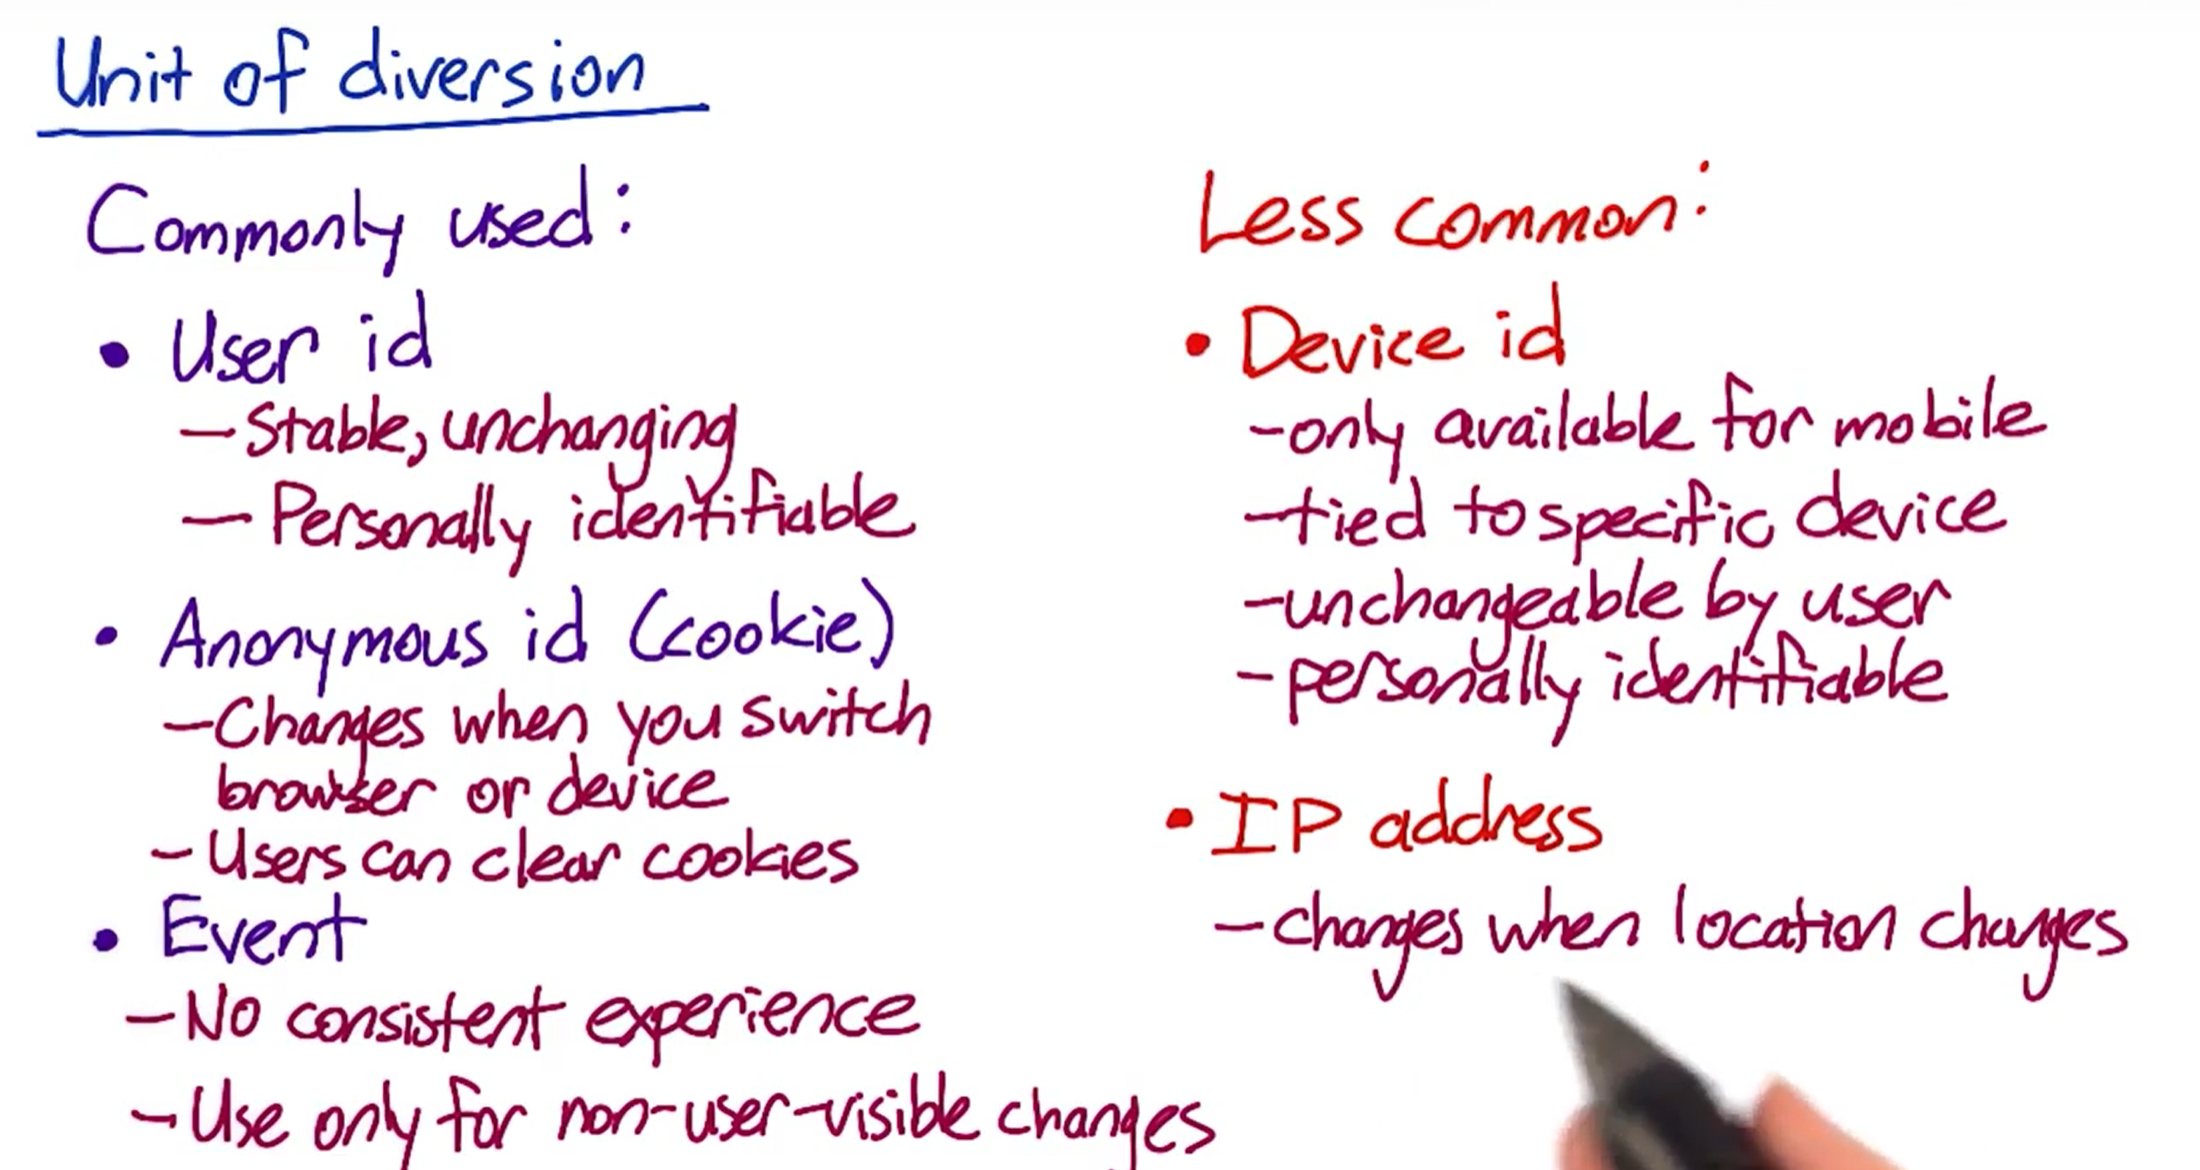 Unit of diversion
Commonly used:
• User id
— Stable, unchanging
— Personally identifiable
• Anonymous id (cookie)
— Changes when you switch
browser or device
– Users can clear cookies
• Event
— No consistent experience
– Use only for non-user-visible changes
Less common:
• Device id
- only available for mobile
- tied to specific device
- unchangeable by user
- personally identifiable
• IP address
– changes when location changes